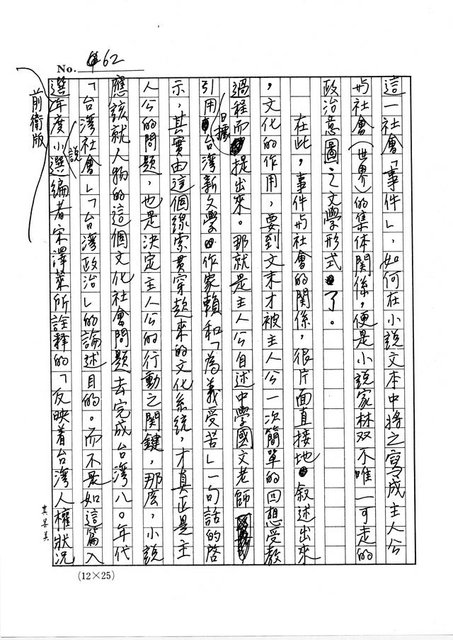 No. 62
這一社會「事件」,如何在小說文本中將之寫成主人公
與社會(世界)的集体関係,便是小說家林双不唯一可走的
政治意圖之文學形式了。
在此,事件與社會的関係,很片面直接地敘述出來
,文化的作用,要到文末才被主人公一次簡單的回想受教
過程而提出來。那就是主人公自述中學國文老師
引用日據台灣新文學作家賴和「為義受苦」一句話的啓
示,其實由這個線索貫穿起來的文化系統,才真正是主
人公的問題,也是決定主人公的行動之関鍵,那麼,小說
應該就人物的這個文化社會問題去完成台灣八〇年代
「台灣社會」「台灣政治」的論述目的。而不是如這篇入
選年度小說選編者宋澤萊所詮釋的「反映着台灣人權狀況
前衛版
(12×25)